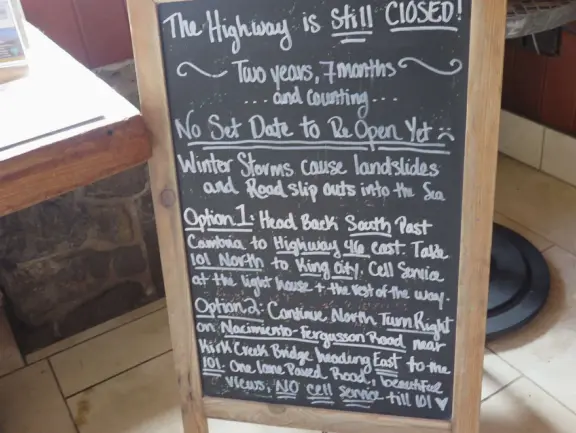 The Highway is Still CLOSED!
Two years, 7 months
... and counting...
No Set Date to Re Open Yet :(
Winter Storms cause landslides
and Road slip outs into the Sea
Option 1: Head Back South Past
Cambria to Highway 46 east. Take
101 North to King City. Cell Service
at the light house + the rest of the way.
Option 2: Continue North, Turn Right
on Nacimiento-Fergusson Road near
Kirk Creek Bridge heading East to the
101. One lane Paved Road, beautiful
views, NO cell service till 101 ♥